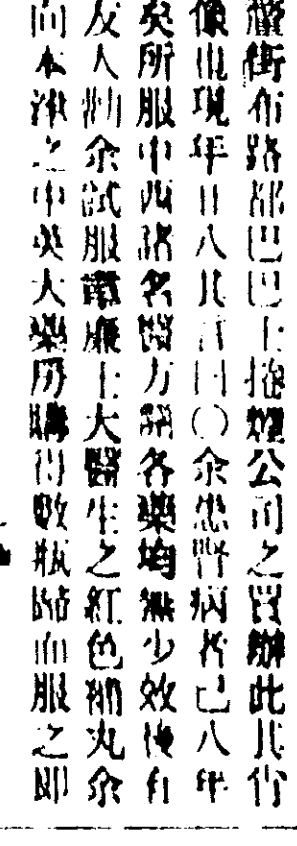 街布路都巴巴士拖煙公司之買辦此其肖
像也現年廿八其言曰〇余患腎病者已八年
矣所服中西諸名醫方劑各藥均無少效後有
友人勸余試服韋廉士大醫生之紅色補丸余
向本津之中英大藥房購得數瓶歸而服之即